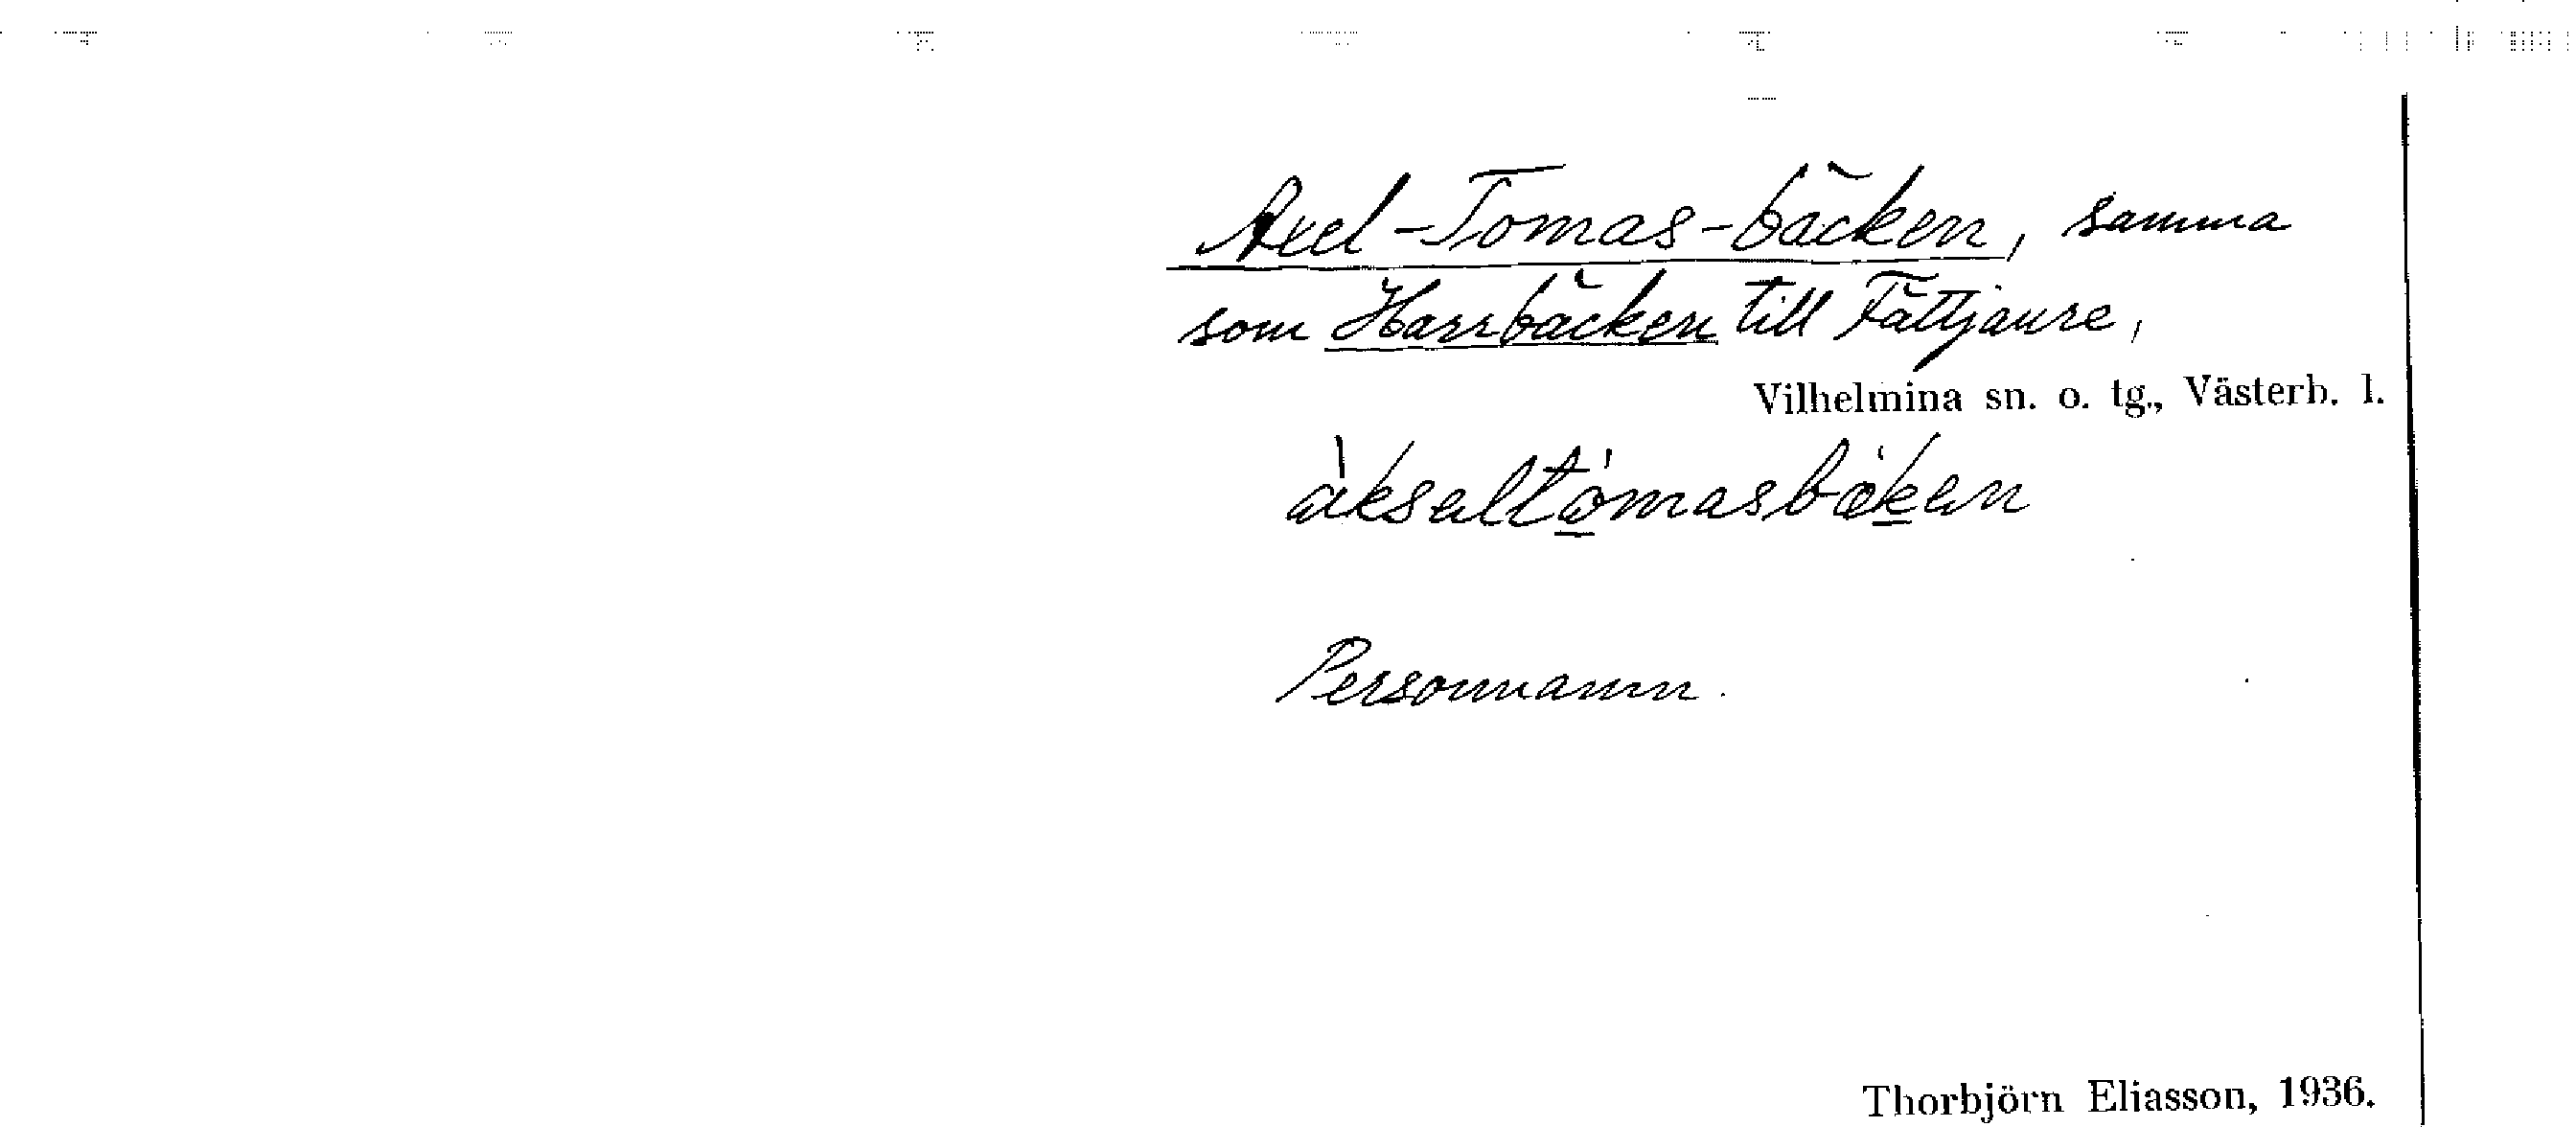 Axel-Tomas-bäcken, samma
som Harrbäcken till Fättjaure,
Vilhelmina sn. o. tg., Västerb. l.
àksaltómasbǽkan
Personnamn.
Thorbjörn Eliasson, 1936.